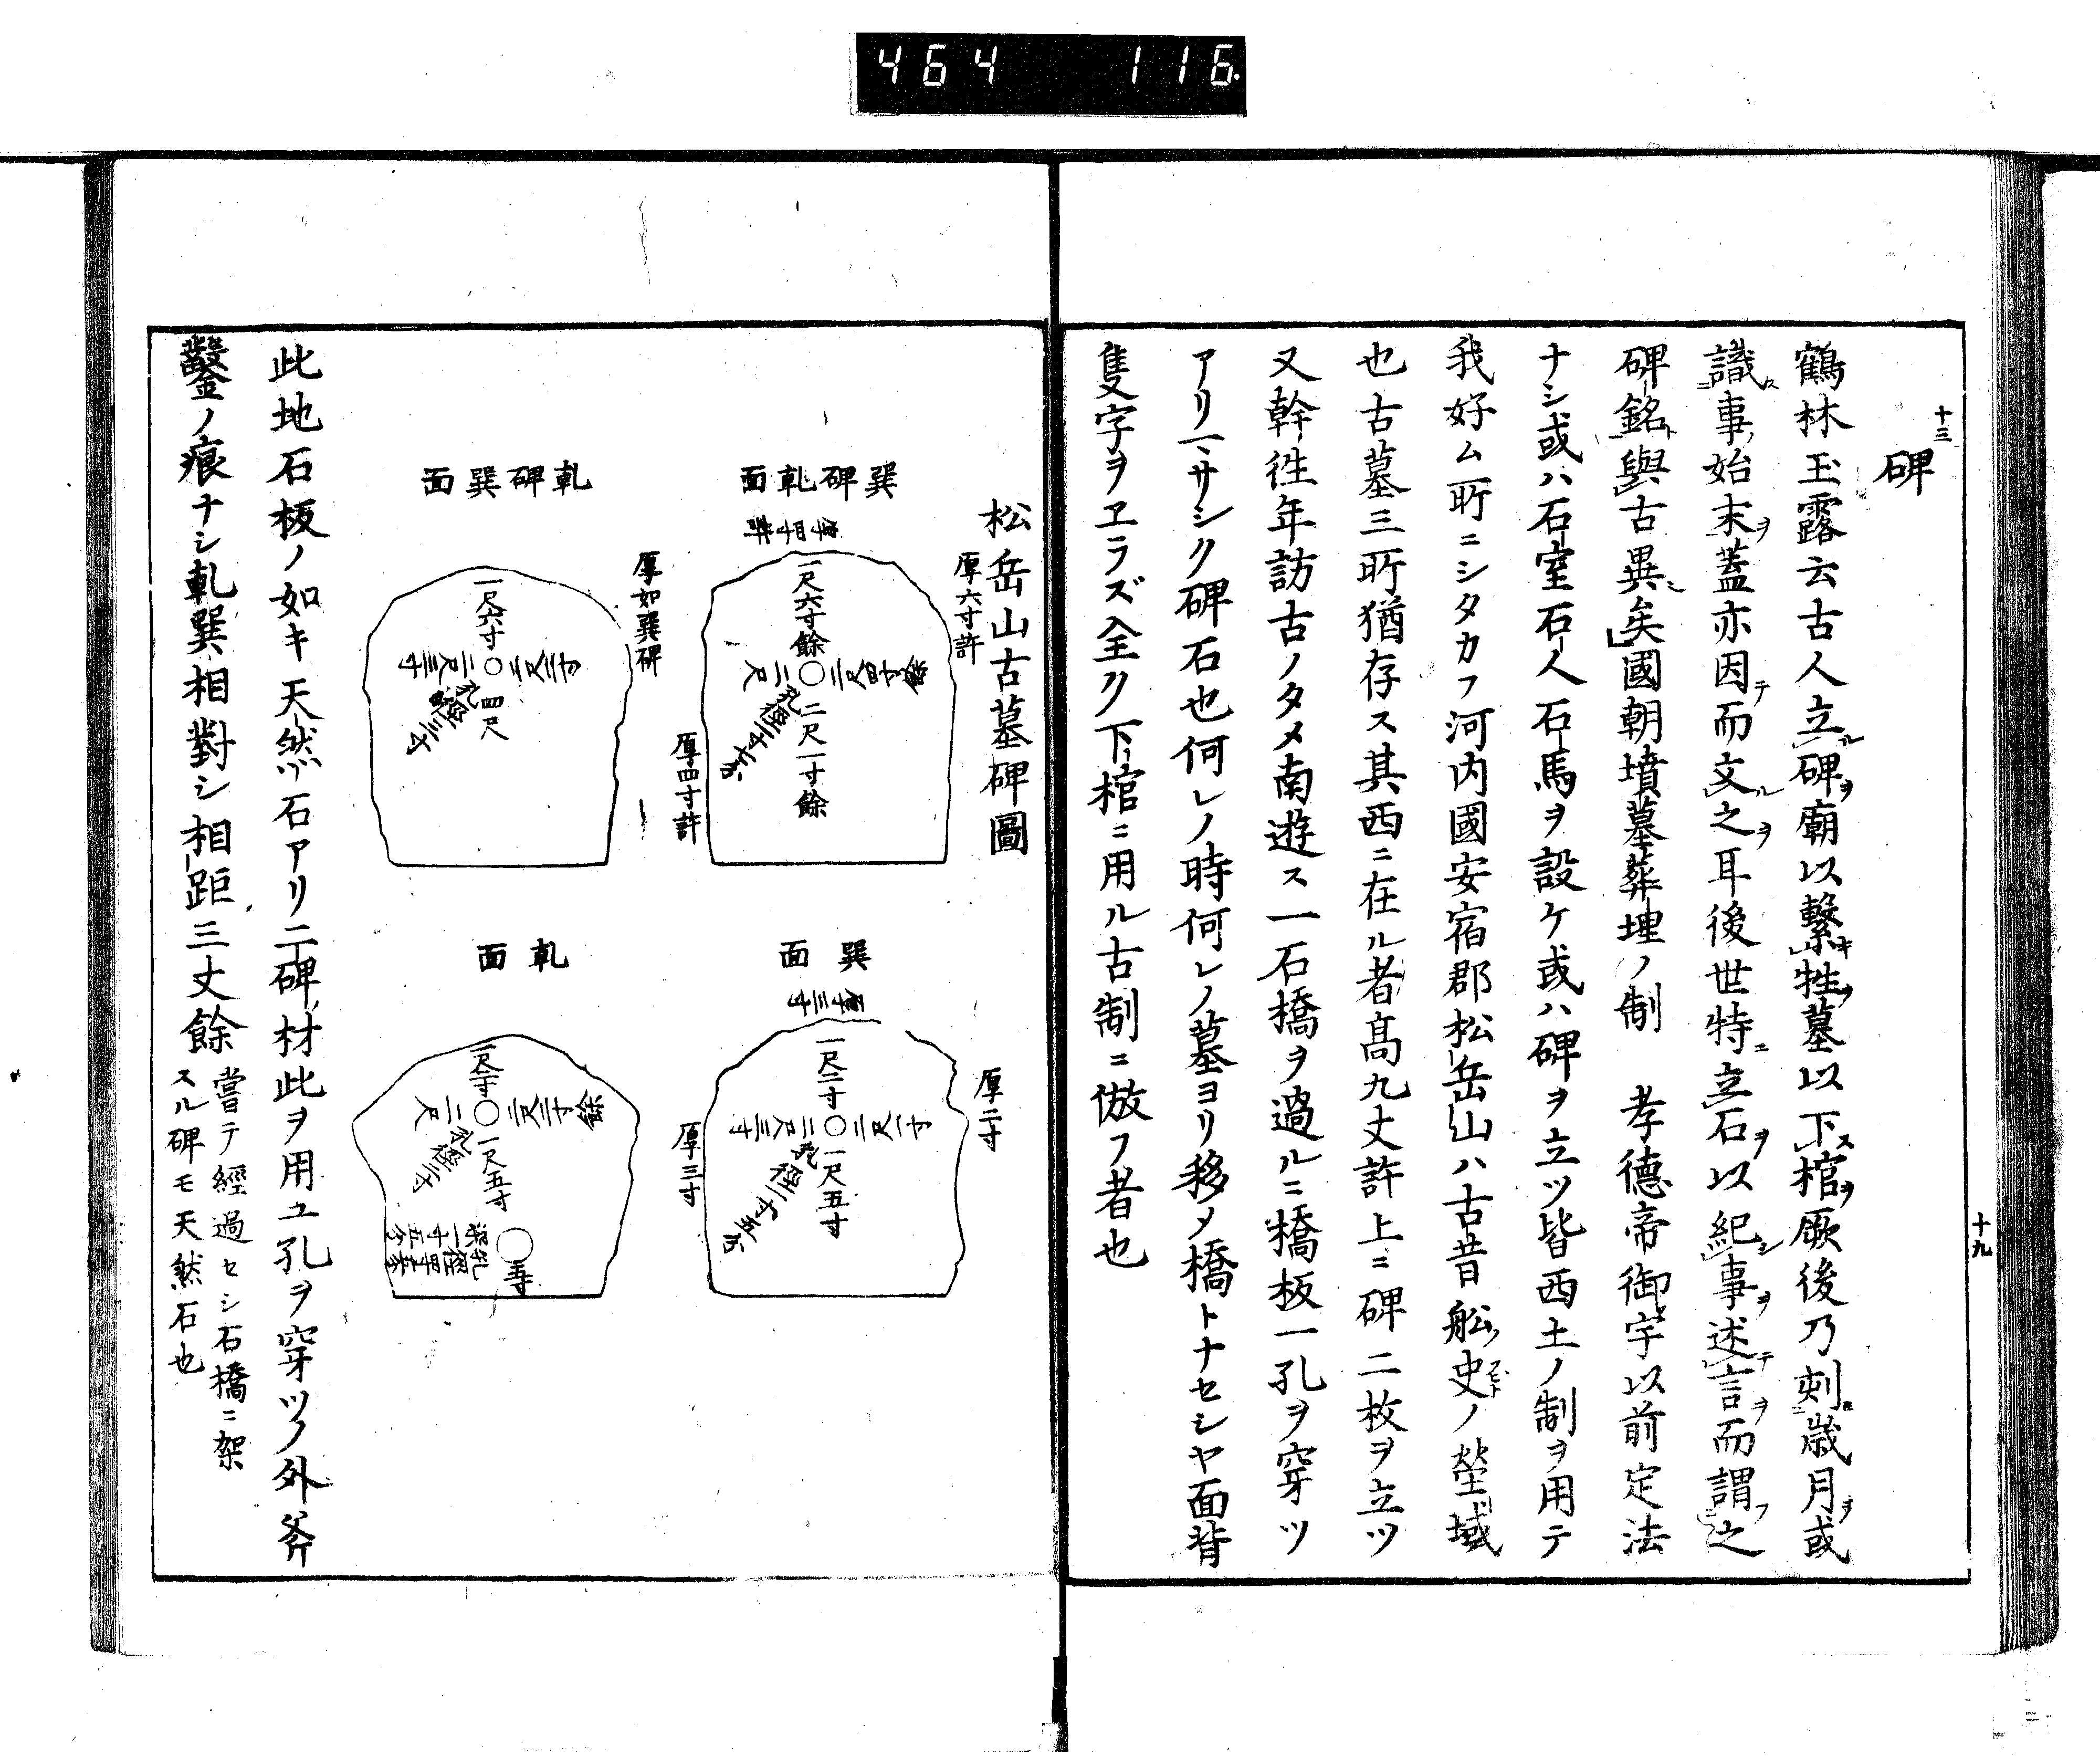 464 116.
十三
碑
鶴林玉露云古人立碑廟以繫牲墓以下棺厥後乃刻歳月或
識事始末蓋亦因而文之耳後世特立石以紀事述言而謂之
碑銘與古異矣國朝墳墓葬埋ノ制 孝德帝御宇以前定法
ナシ或ハ石室石人石馬ヲ設ケ或ハ碑ヲ立ツ皆西土ノ制ヲ用テ
我好ム所ニシタカフ河内國安宿郡松岳山ハ古昔舩史ノ塋域
也古墓三所猶存ス其西ニ在ル者高九丈許上ニ碑二枚ヲ立ツ
又幹徃年訪古ノタメ南遊ス一石橋ヲ過ルニ橋板一孔ヲ穿ツ
アリ マサシク碑石也何レノ時何レノ墓ヨリ移メ橋トナセシヤ面背
隻字ヲヱラズ全ク下棺ニ用ル古制ニ倣フ者也
十九
松岳山古墓碑圖
巽碑乹面
厚四寸許
厚六寸許
一尺六寸餘
二尺四寸餘
二尺
孔徑二寸七分
二尺一寸餘
厚四寸許
乹碑巽面
厚如巽碑
一尺六寸
二尺三寸
二尺三寸
孔徑三寸
四尺
巽面
厚三寸
厚二寸
一尺二寸
二尺二寸
二尺三寸
孔徑一寸五分
一尺五寸
厚三寸
乹面
一尺二寸
二尺三寸餘
二尺
孔徑二寸
一尺五寸
五寸
此地石板ノ如キ天然石アリ二碑材此ヲ用ユ孔ヲ穿ツノ外斧
鑿ノ痕ナシ乹巽相對シ相距三丈餘
嘗テ經過セシ石橋ニ架
スル碑モ天然石也